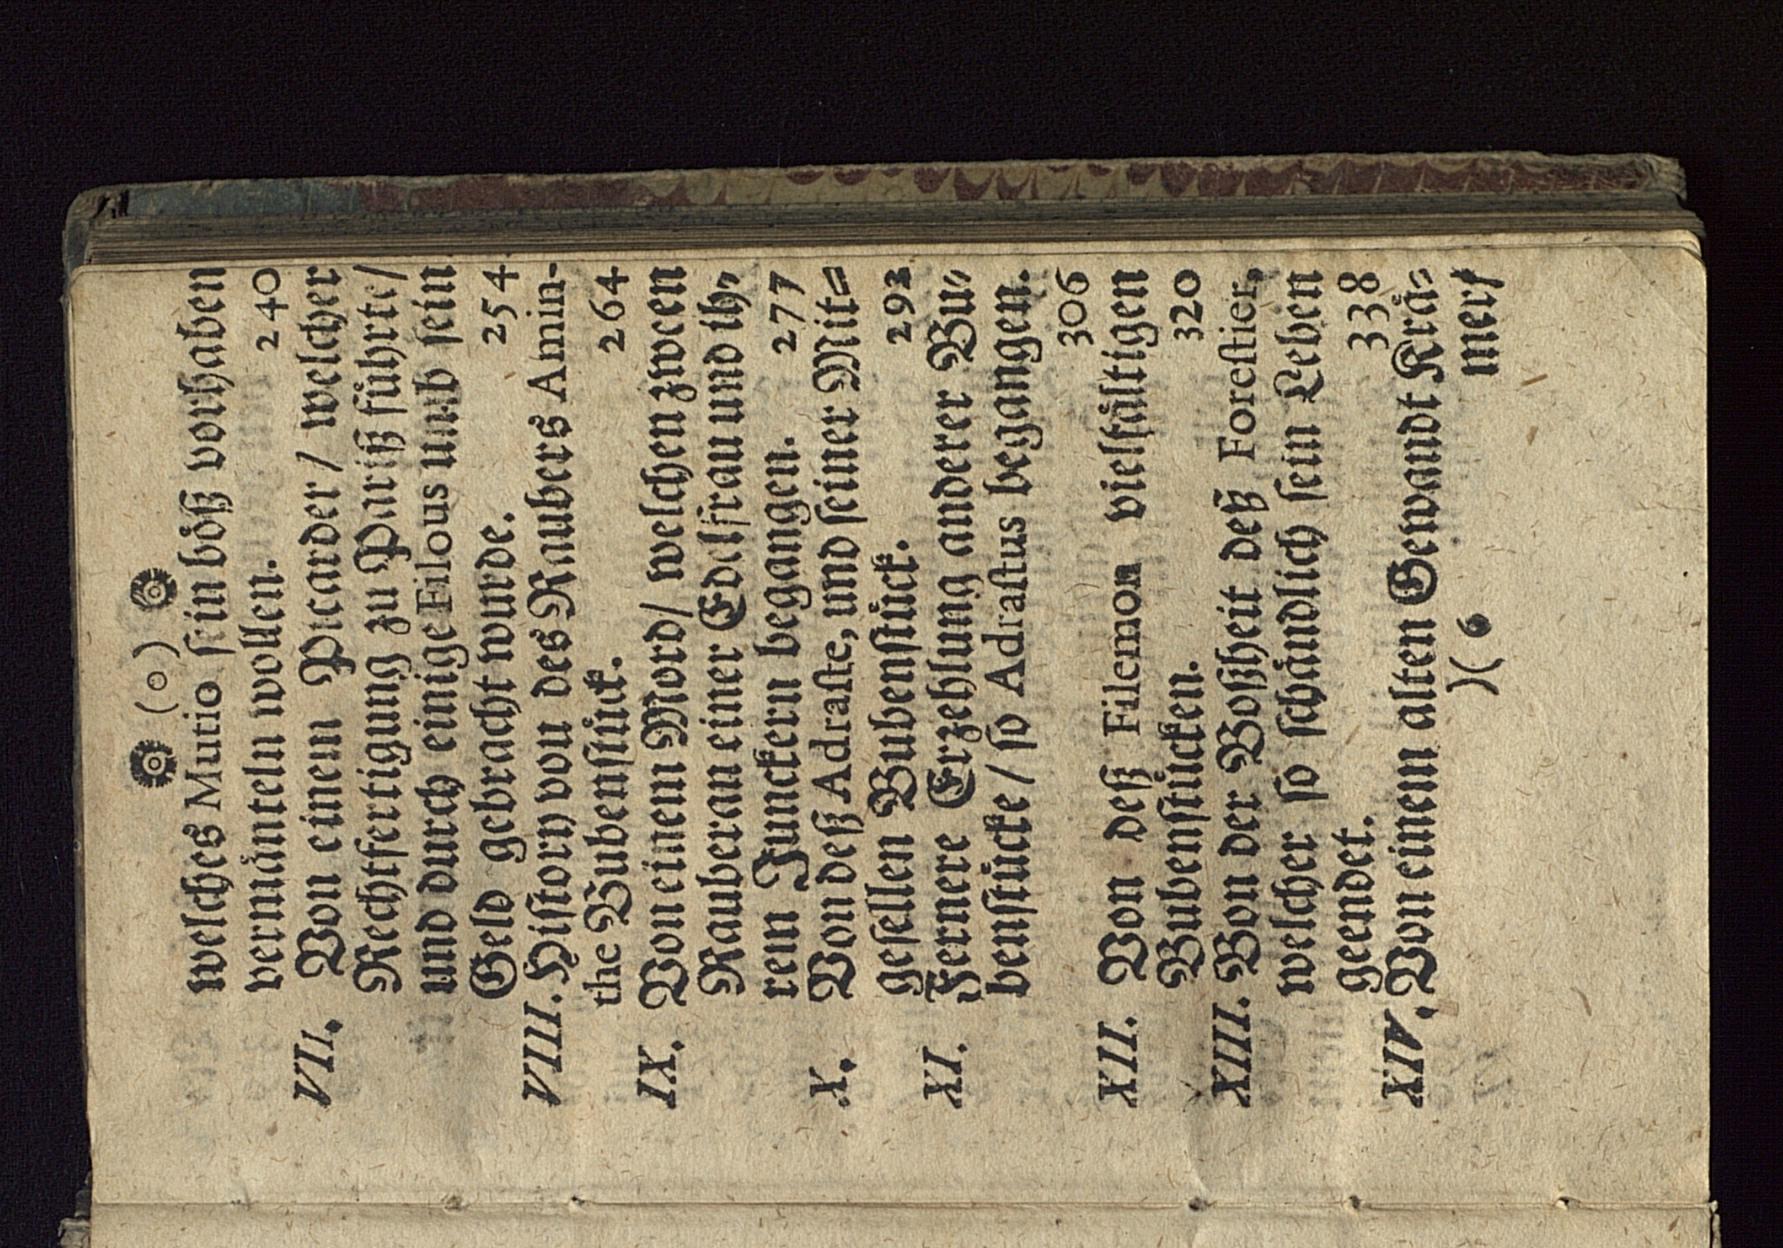 (o)
welches Mutio sein böß vorhaben
vermänteln wollen. 240
VII. Von einem Picarder / welcher
Rechtfertigung zu Pariß führte /
und durch einige Filous umb sein
Geld gebracht wurde. 254
VIII. Historn von des Raubers Amin-
the Bubenstück. 264
IX. Von einem Mord / welchen zween
Rauber an einer Edelfrau und ih-
ren Junckern begangen. 277
X. Von deß Adraste, und seiner Mit-
gesellen Bubenstück. 292
XI. Fernere Erzehlung anderer Bu-
benstücke / so Adrastus begangen.
306
XII. Von deß Filemon vielfältigen
Bubenstücken. 320
XIII. Von der Boßheit deß Forestier,
welcher so schändlich sein Leben
geendet. 338
XIV. Von einem alten Gewandt Krä-
)( 6 mer /